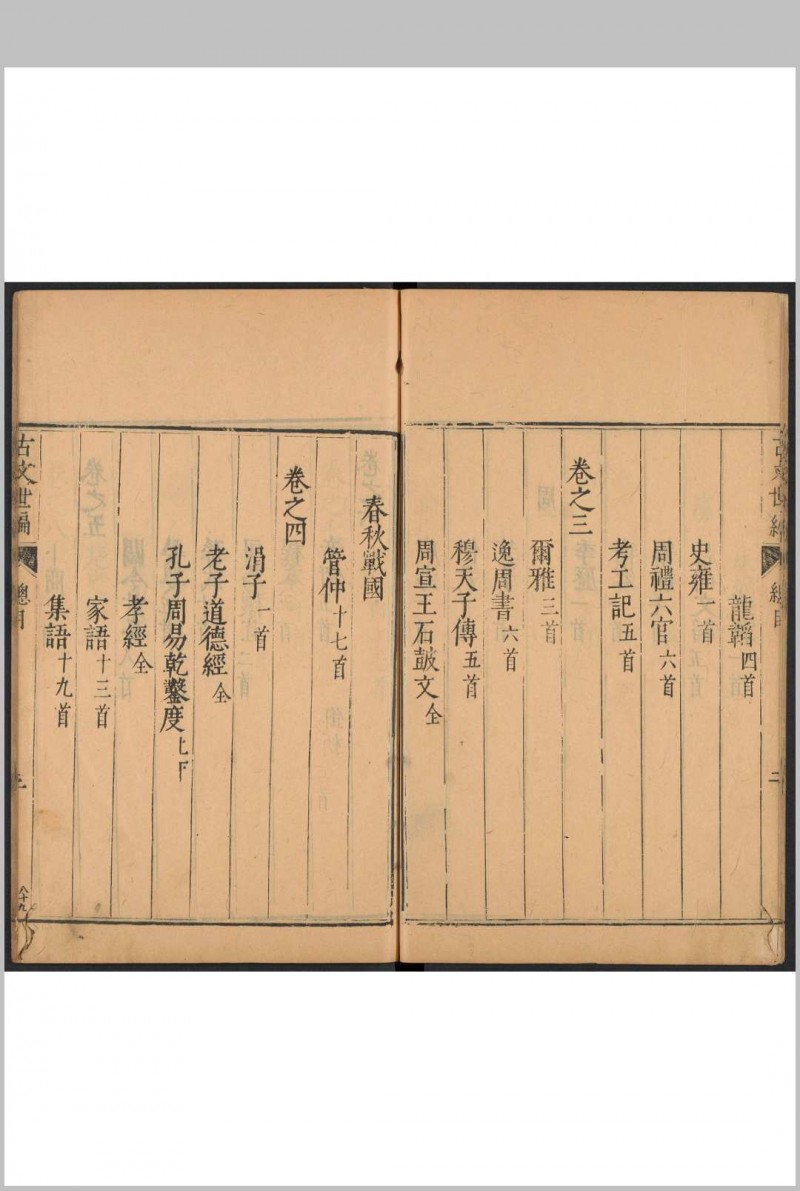 龍韜四首
史雍一首
周禮六官六首
考工記五首
卷之三
爾雅三首
逸周書六首
穆天子傳五首
周宣王石皷文全
春秋戰國
管仲十七首
卷之四
涓子一首
老子道德經全
孔子周易乾鑿度上下
孝經全
家語十三首
集語十九首
古文世編
總目